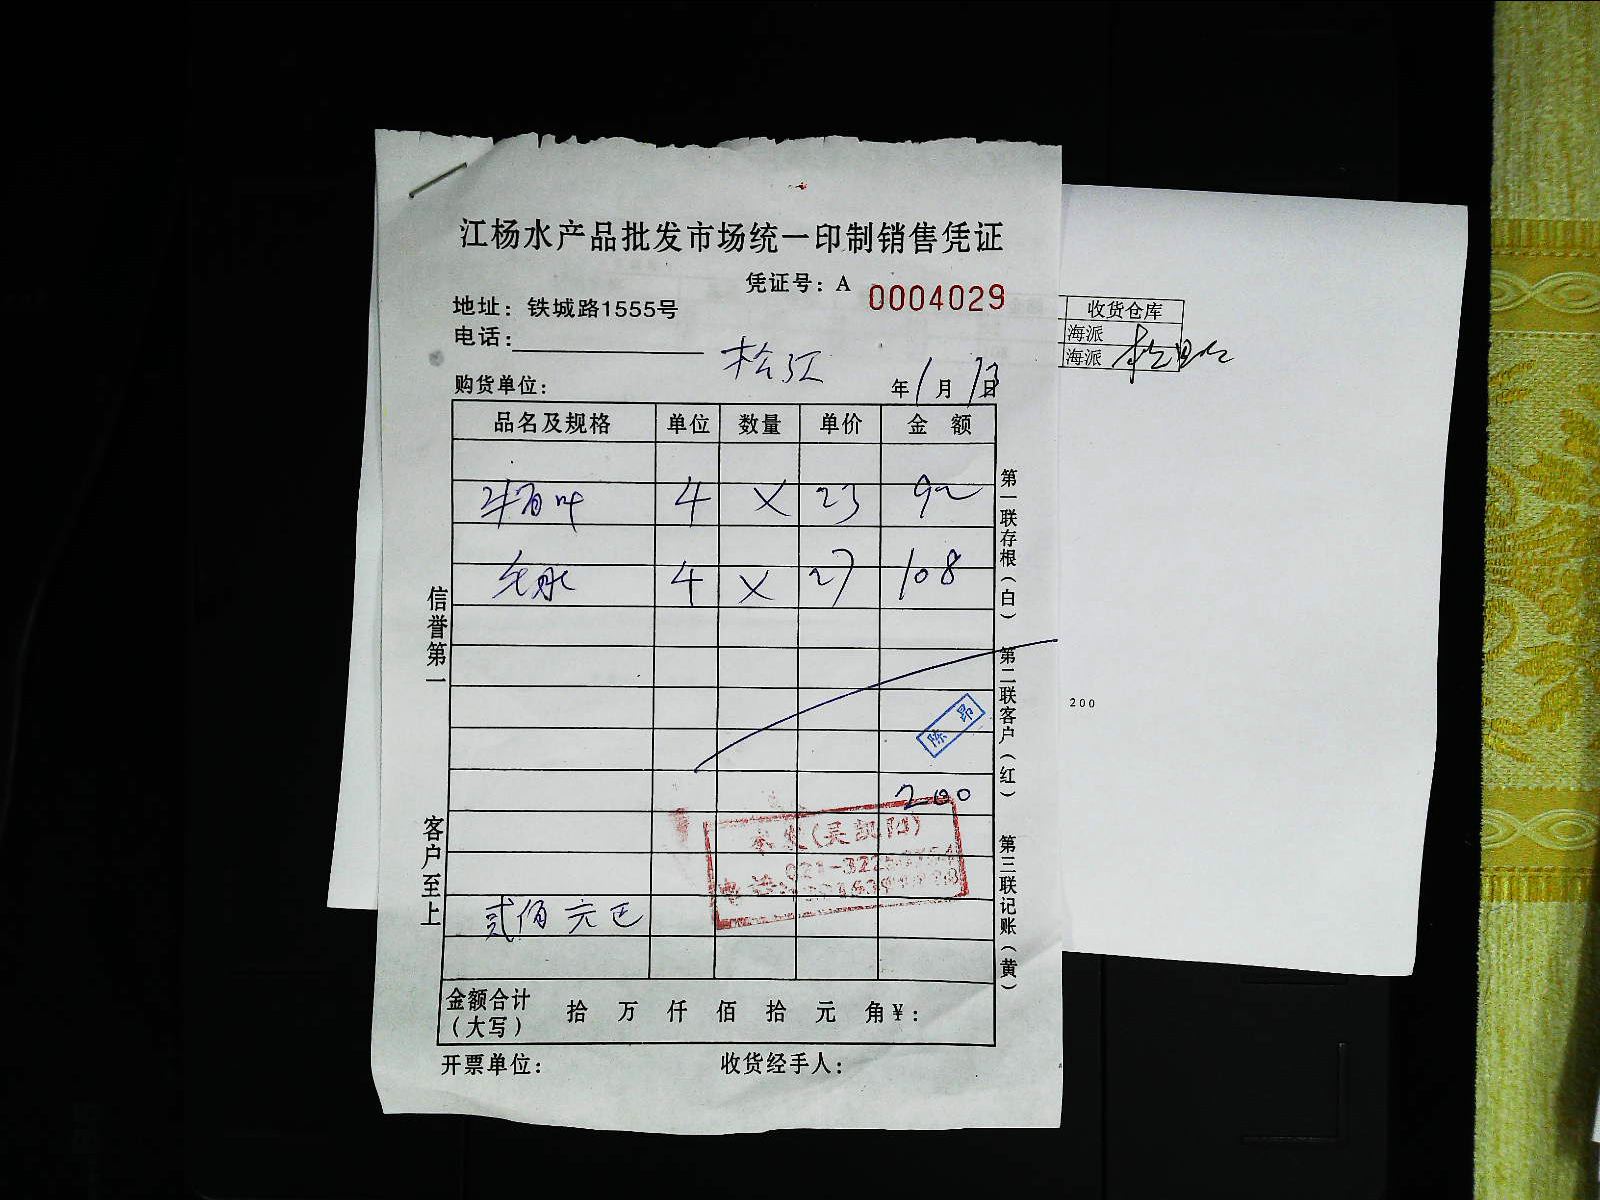 江杨水产品批发市场统一印制销售凭证
凭证号：A 0004029
地址：铁城路1555号
电话：
松江
购货单位： 年1月13日
品名及规格 单位 数量 单价 金额
牛百叶 4 × 23 92
4 × 27 108
200
贰佰元正
金额合计（大写） 拾 万 仟 佰 拾 元 角 ¥：
开票单位： 收货经手人：
信誉第一
客户至上
第一联存根（白） 第二联客户（红） 第三联记账（黄）
陈昂
(吴凯阳)
收货仓库
海派
海派 松江
200